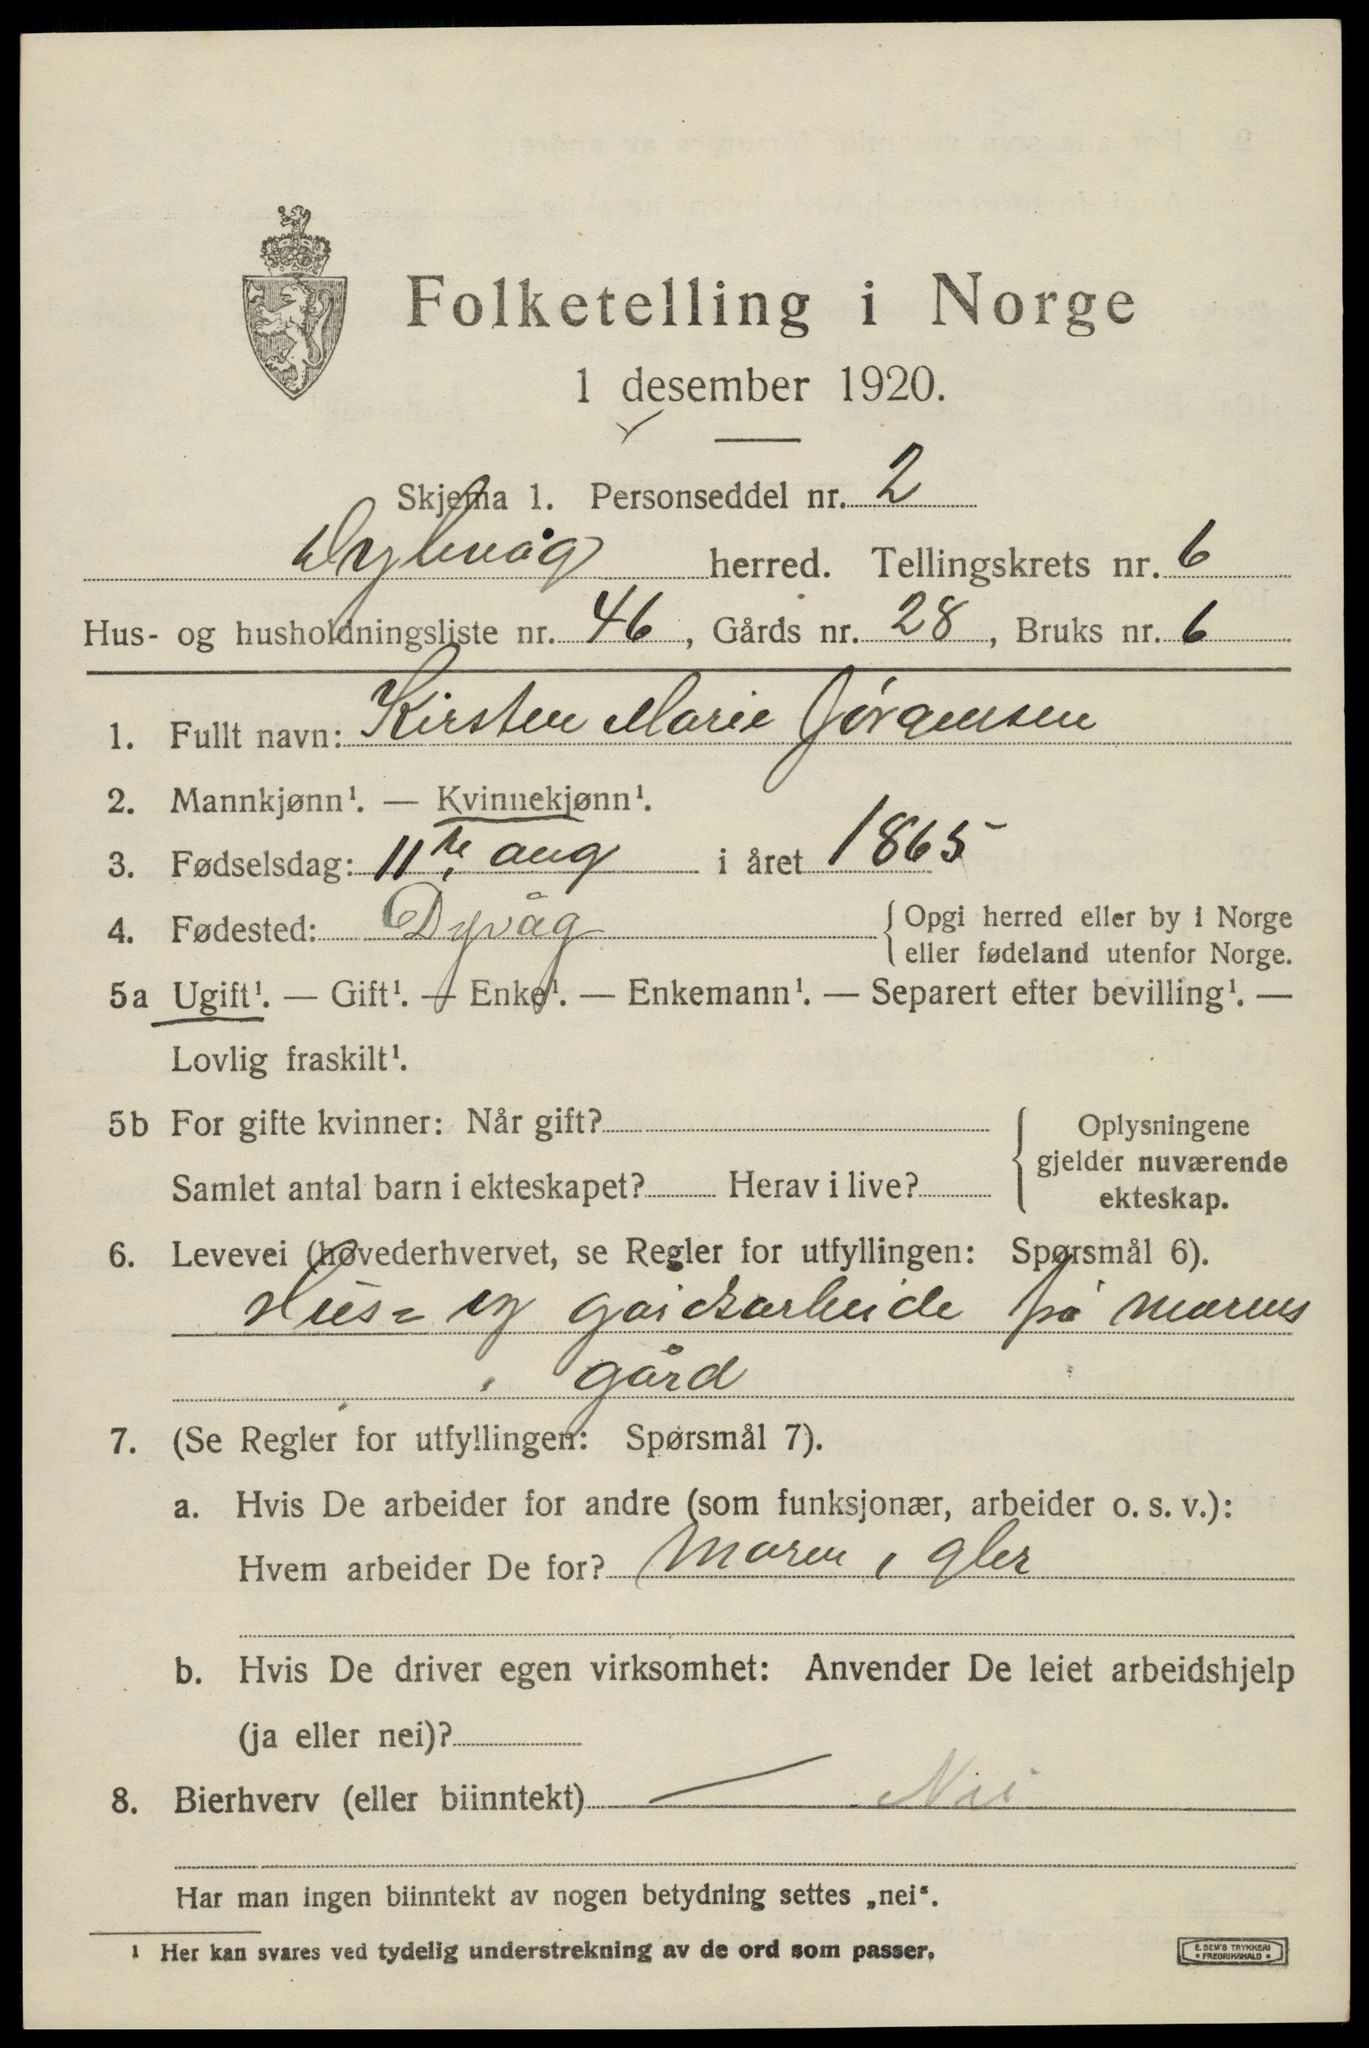 Folketelling i Norge
1 desember 1920.
Skjema 1. Personseddel nr. 2
Dybvåg herred. Tellingskrets nr. 6
Hus- og husholdningsliste nr. 46, Gårds nr. 28, Bruks nr. 6
1. Fullt navn: Kirsten Marie Jörgensen
2. Mannkjønn¹. — Kvinnekjønn¹.
3. Fødselsdag: 11te aug i året 1865
4. Fødested: Dyvåg { Opgi herred eller by i Norge
eller fødeland utenfor Norge.
5a Ugift¹. — Gift¹. — Enke¹. — Enkemann¹. — Separert efter bevilling¹. —
Lovlig fraskilt¹.
5b For gifte kvinner: Når gift?
Samlet antal barn i ekteskapet? Herav i live?
Oplysningene
gjelder nuværende
ekteskap.
6. Levevei (hovederhvervet, se Regler for utfyllingen: Spørsmål 6).
Hus= og på morens
gård
7. (Se Regler for utfyllingen: Spørsmål 7).
a. Hvis De arbeider for andre (som funksjonær, arbeider o. s. v.):
Hvem arbeider De for? moren,
b. Hvis De driver egen virksomhet: Anvender De leiet arbeidshjelp
(ja eller nei)?
8. Bierhverv (eller biinntekt) — Nei
Har man ingen biinntekt av nogen betydning settes „nei“.
¹ Her kan svares ved tydelig understrekning av de ord som passer.
E. SEM'S TRYKKERI
• FREDRIKSHALD •